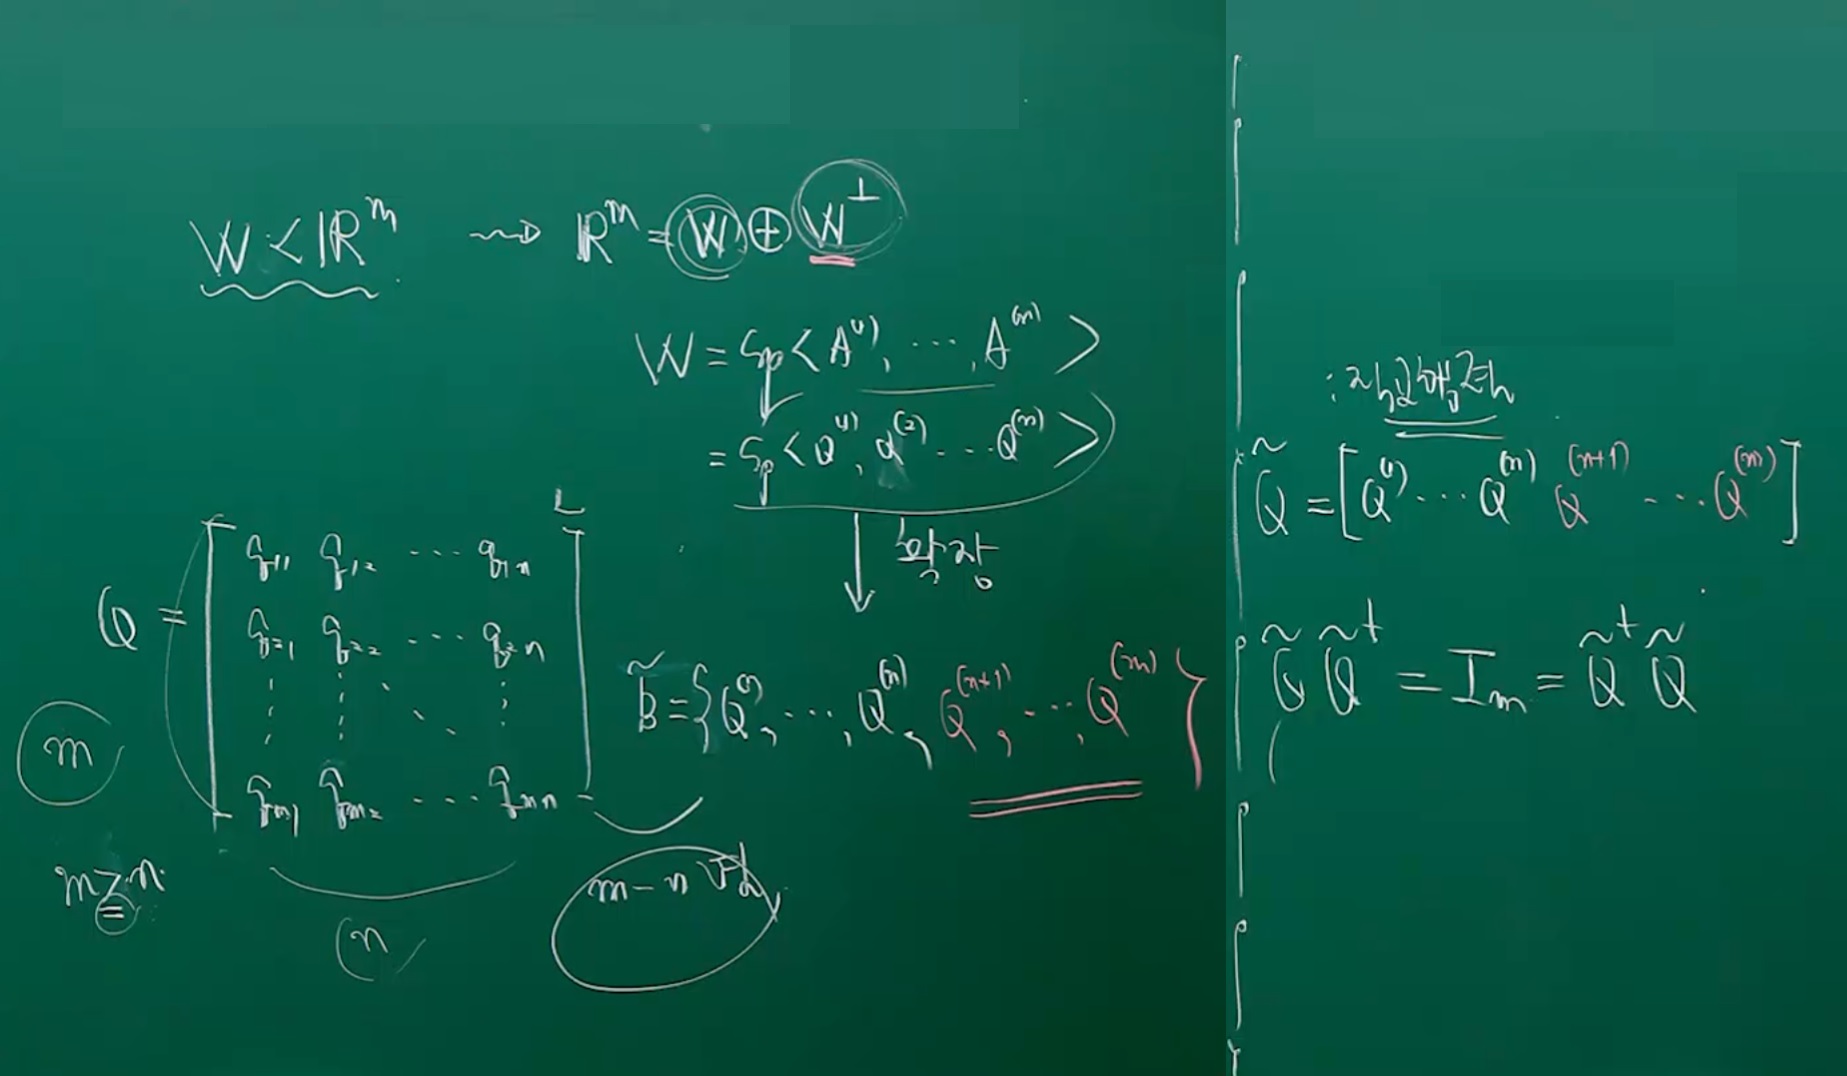 W < ℝ^m ⇝ ℝ^m = W ⊕ W^⊥
W = Sp < A^(1), ⋯, A^(n) >
= Sp < Q^(1), Q^(2) ⋯ Q^(n) >
확장
Q = [ q_11 q_12 ⋯ q_1n
q_21 q_22 ⋯ q_2n
⋮ ⋮ ⋱ ⋮
q_m1 q_m2 ⋯ q_mn ]
m
m ≥ n
n
m - n
B̃ = { Q^(1), ⋯, Q^(n), Q^(n+1), ⋯, Q^(m) }
Q̃ = [ Q^(1) ⋯ Q^(n) Q^(n+1) ⋯ Q^(m) ]
Q̃ Q̃^t = I_m = Q̃^t Q̃